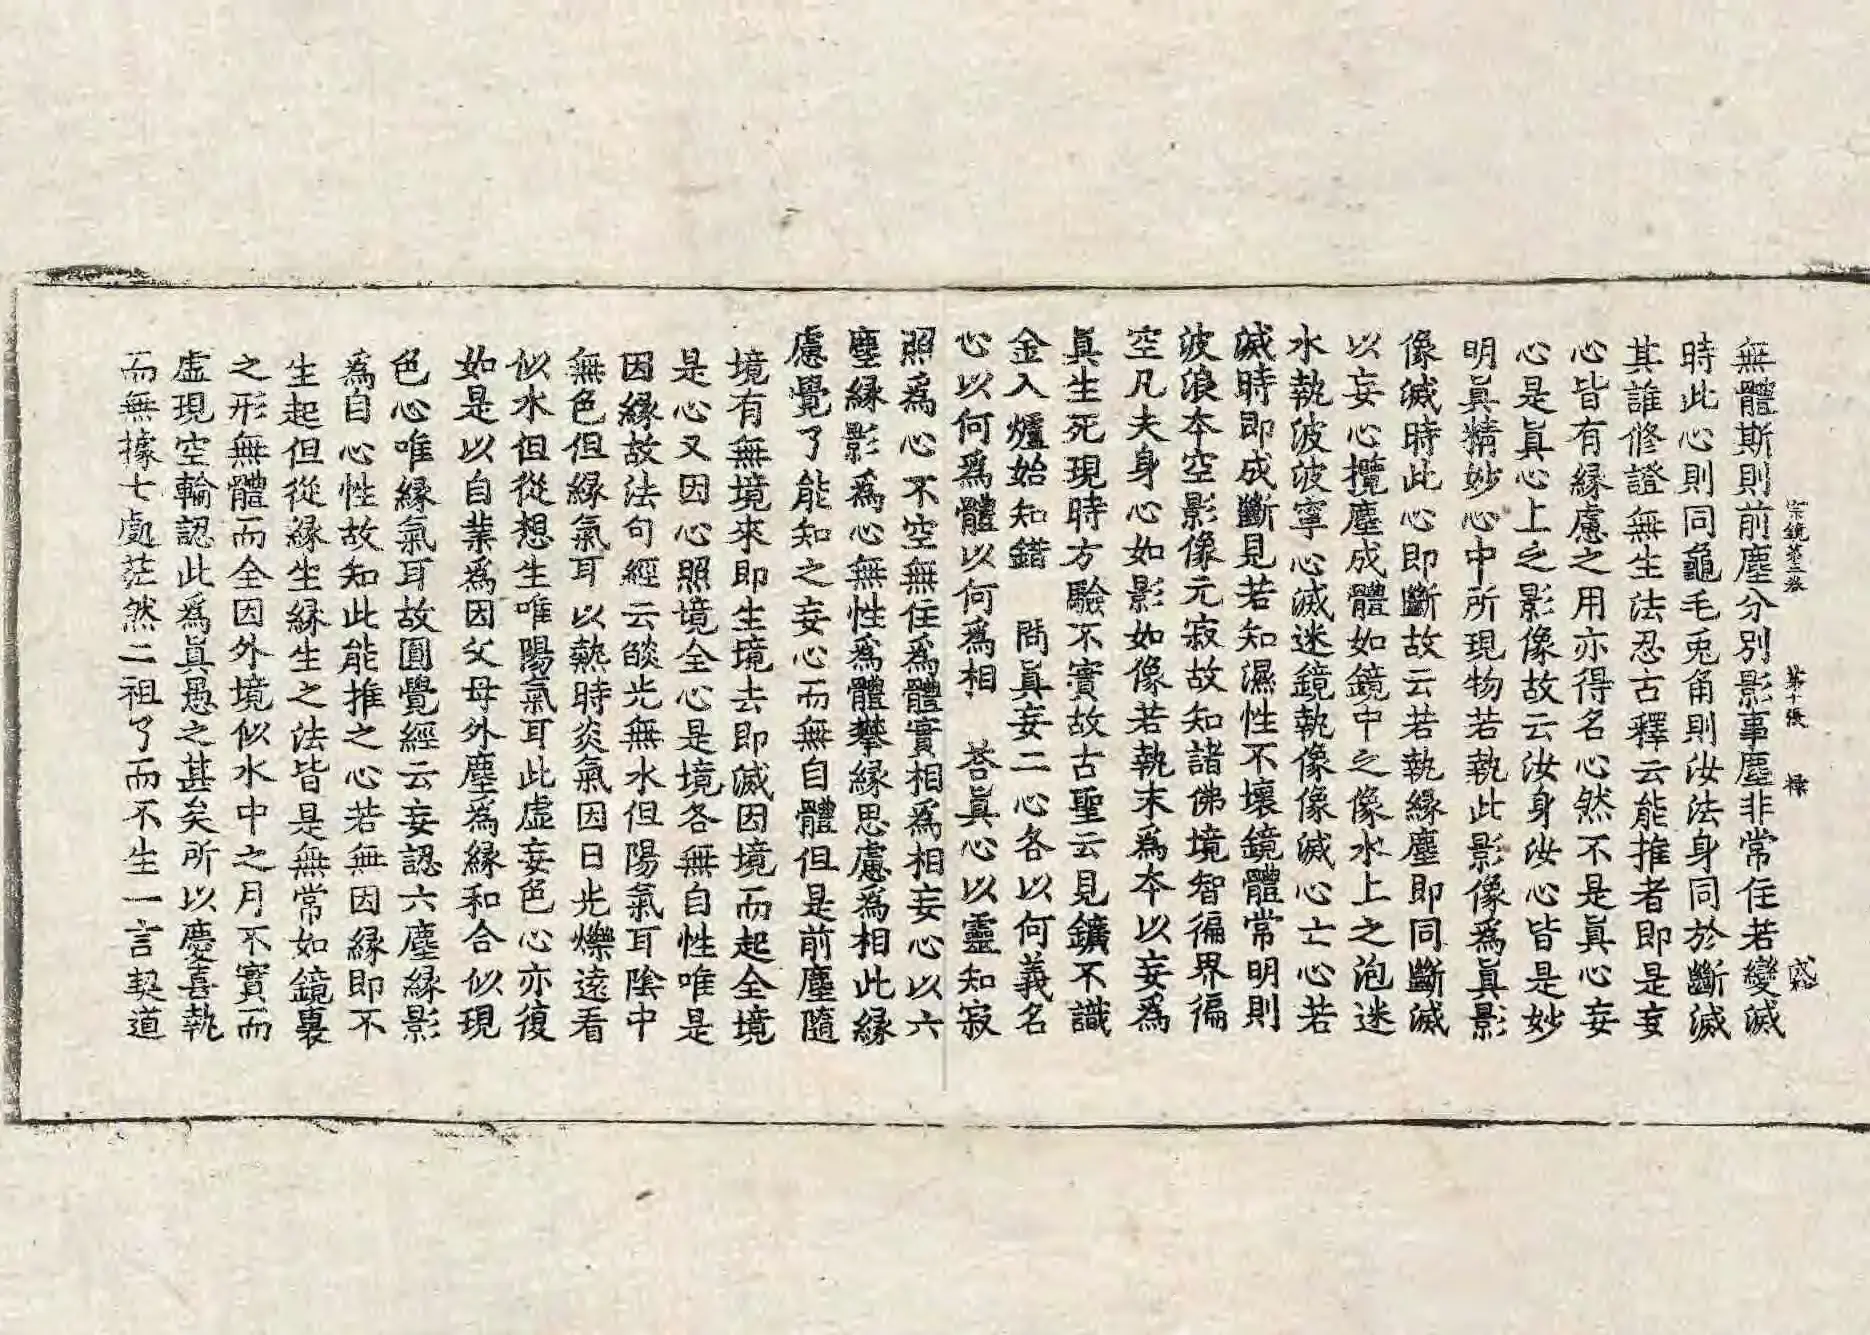 宗鏡苐三卷 苐十張 㯹
無體斯則前塵分別影事塵非常住若變滅
時此心則同龜毛兎角則汝法身同於斷滅
其誰修證無生法忍古釋云能推者即是妄
心皆有緣慮之用亦得名心然不是眞心妄
心是眞心上之影像故云汝身汝心皆是妙
明眞精妙心中所現物若執此影像爲眞影
像滅時此心即斷故云若執緣塵即同斷滅
以妄心攬塵成體如鏡中之像水上之泡迷
水執波波寧心滅迷鏡執像像滅心亡心若
滅時即成斷見若知濕性不壞鏡體常明則
波浪本空影像元寂故知諸佛境智徧界徧
空凡夫身心如影如像若執末爲本以妄爲
眞生死現時方驗不實故古聖云見鑛不識
金入爐始知錯 問眞妄二心各以何義名
心以何爲體以何爲相 荅眞心以靈知寂
照爲心不空無住爲體實相爲相妄心以六
塵緣影爲心無性爲體攀緣思慮爲相此緣
慮覺了能知之妄心而無自體但是前塵隨
境有無境來即生境去即滅因境而起全境
是心又因心照境全心是境各無自性唯是
因緣故法句經云燄光無水但陽氣耳陰中
無色但緣氣耳以熱時炎氣因日光爍遠看
似水但從想生唯陽氣耳此虛妄色心亦復
如是以自業爲因父母外塵爲緣和合似現
色心唯緣氣耳故圓覺經云妄認六塵緣影
爲自心性故知此能推之心若無因緣即不
生起但從緣生緣生之法皆是無常如鏡裏
之形無體而全因外境似水中之月不實而
虛現空輪認此爲眞愚之甚矣所以慶喜執
而無據七處茫然二祖了而不生一言契道